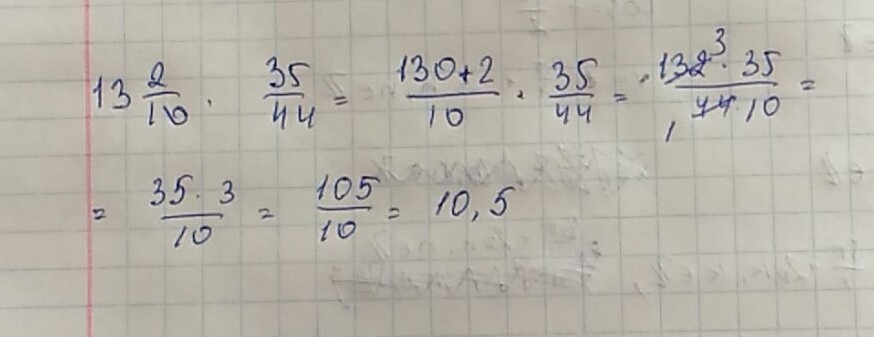 13 2/10 · 35/44 = 130+2/10 · 35/44 = 132³ · 35/₁44 · 10 =
= 35 · 3/10 = 105/10 = 10,5